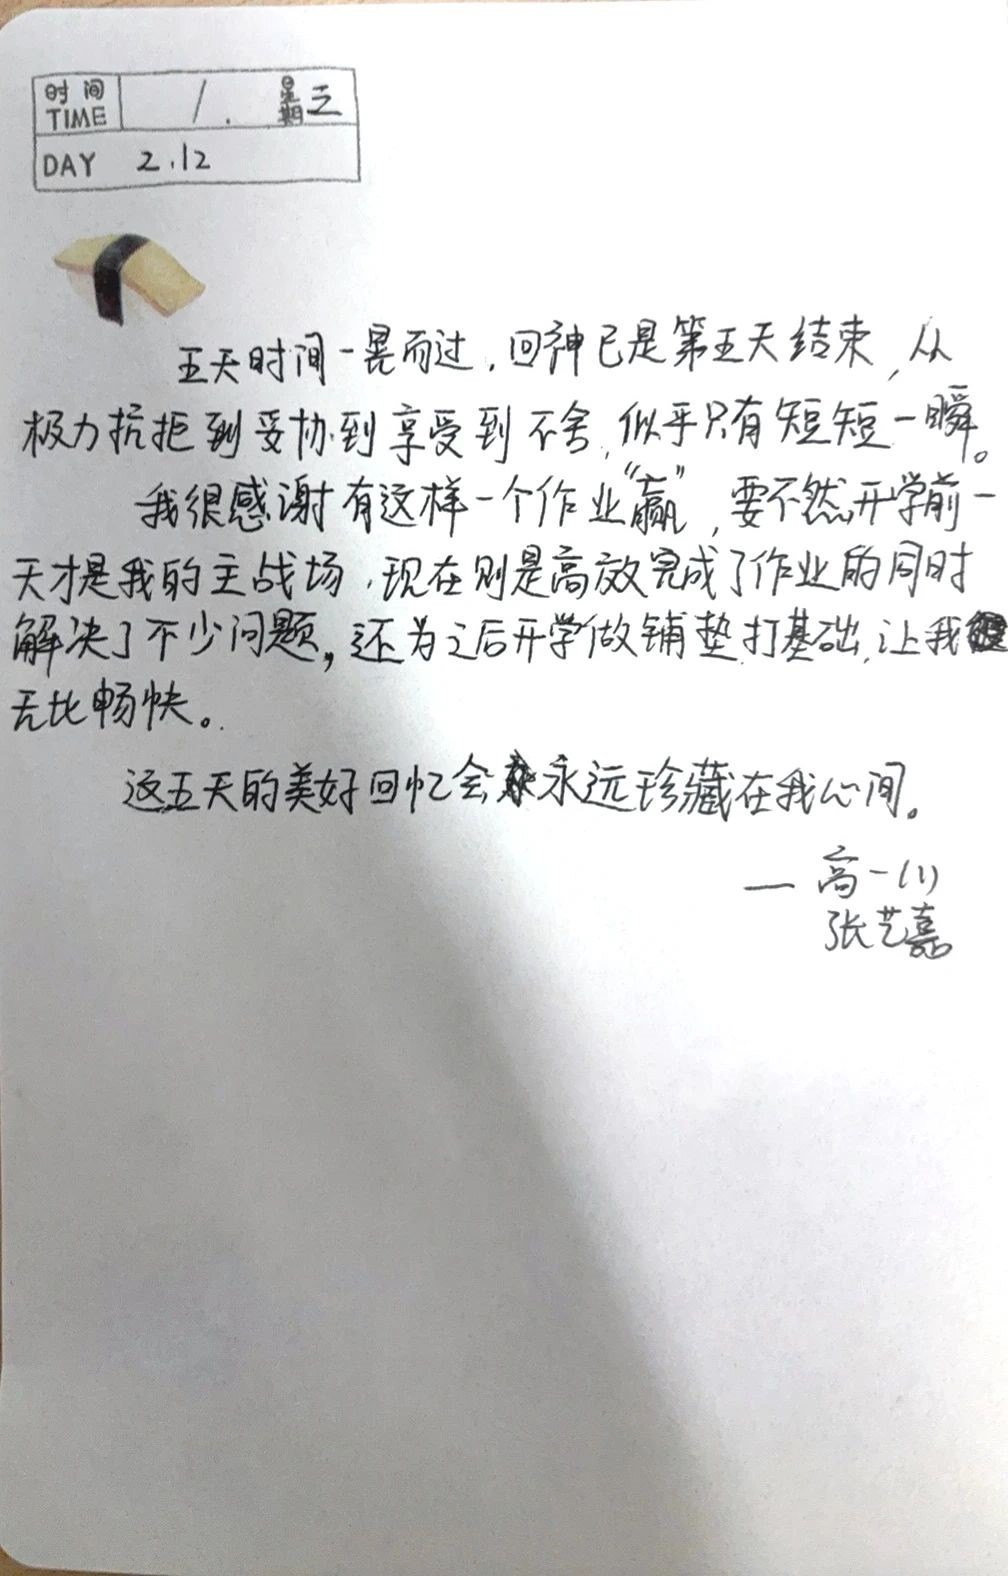 时间 TIME / . 星期三
DAY 2.12
五天时间一晃而过，回神已是第五天结束，从
极力抗拒到妥协到享受到不舍，似乎只有短短一瞬。
我很感谢有这样一个作业“赢”，要不然开学前一
天才是我的主战场，现在则是高效完成了作业的同时
解决了不少问题，还为之后开学做铺垫打基础，让我
无比畅快。
这五天的美好回忆会永远珍藏在我心间。
— 高一(1)
张艺嘉